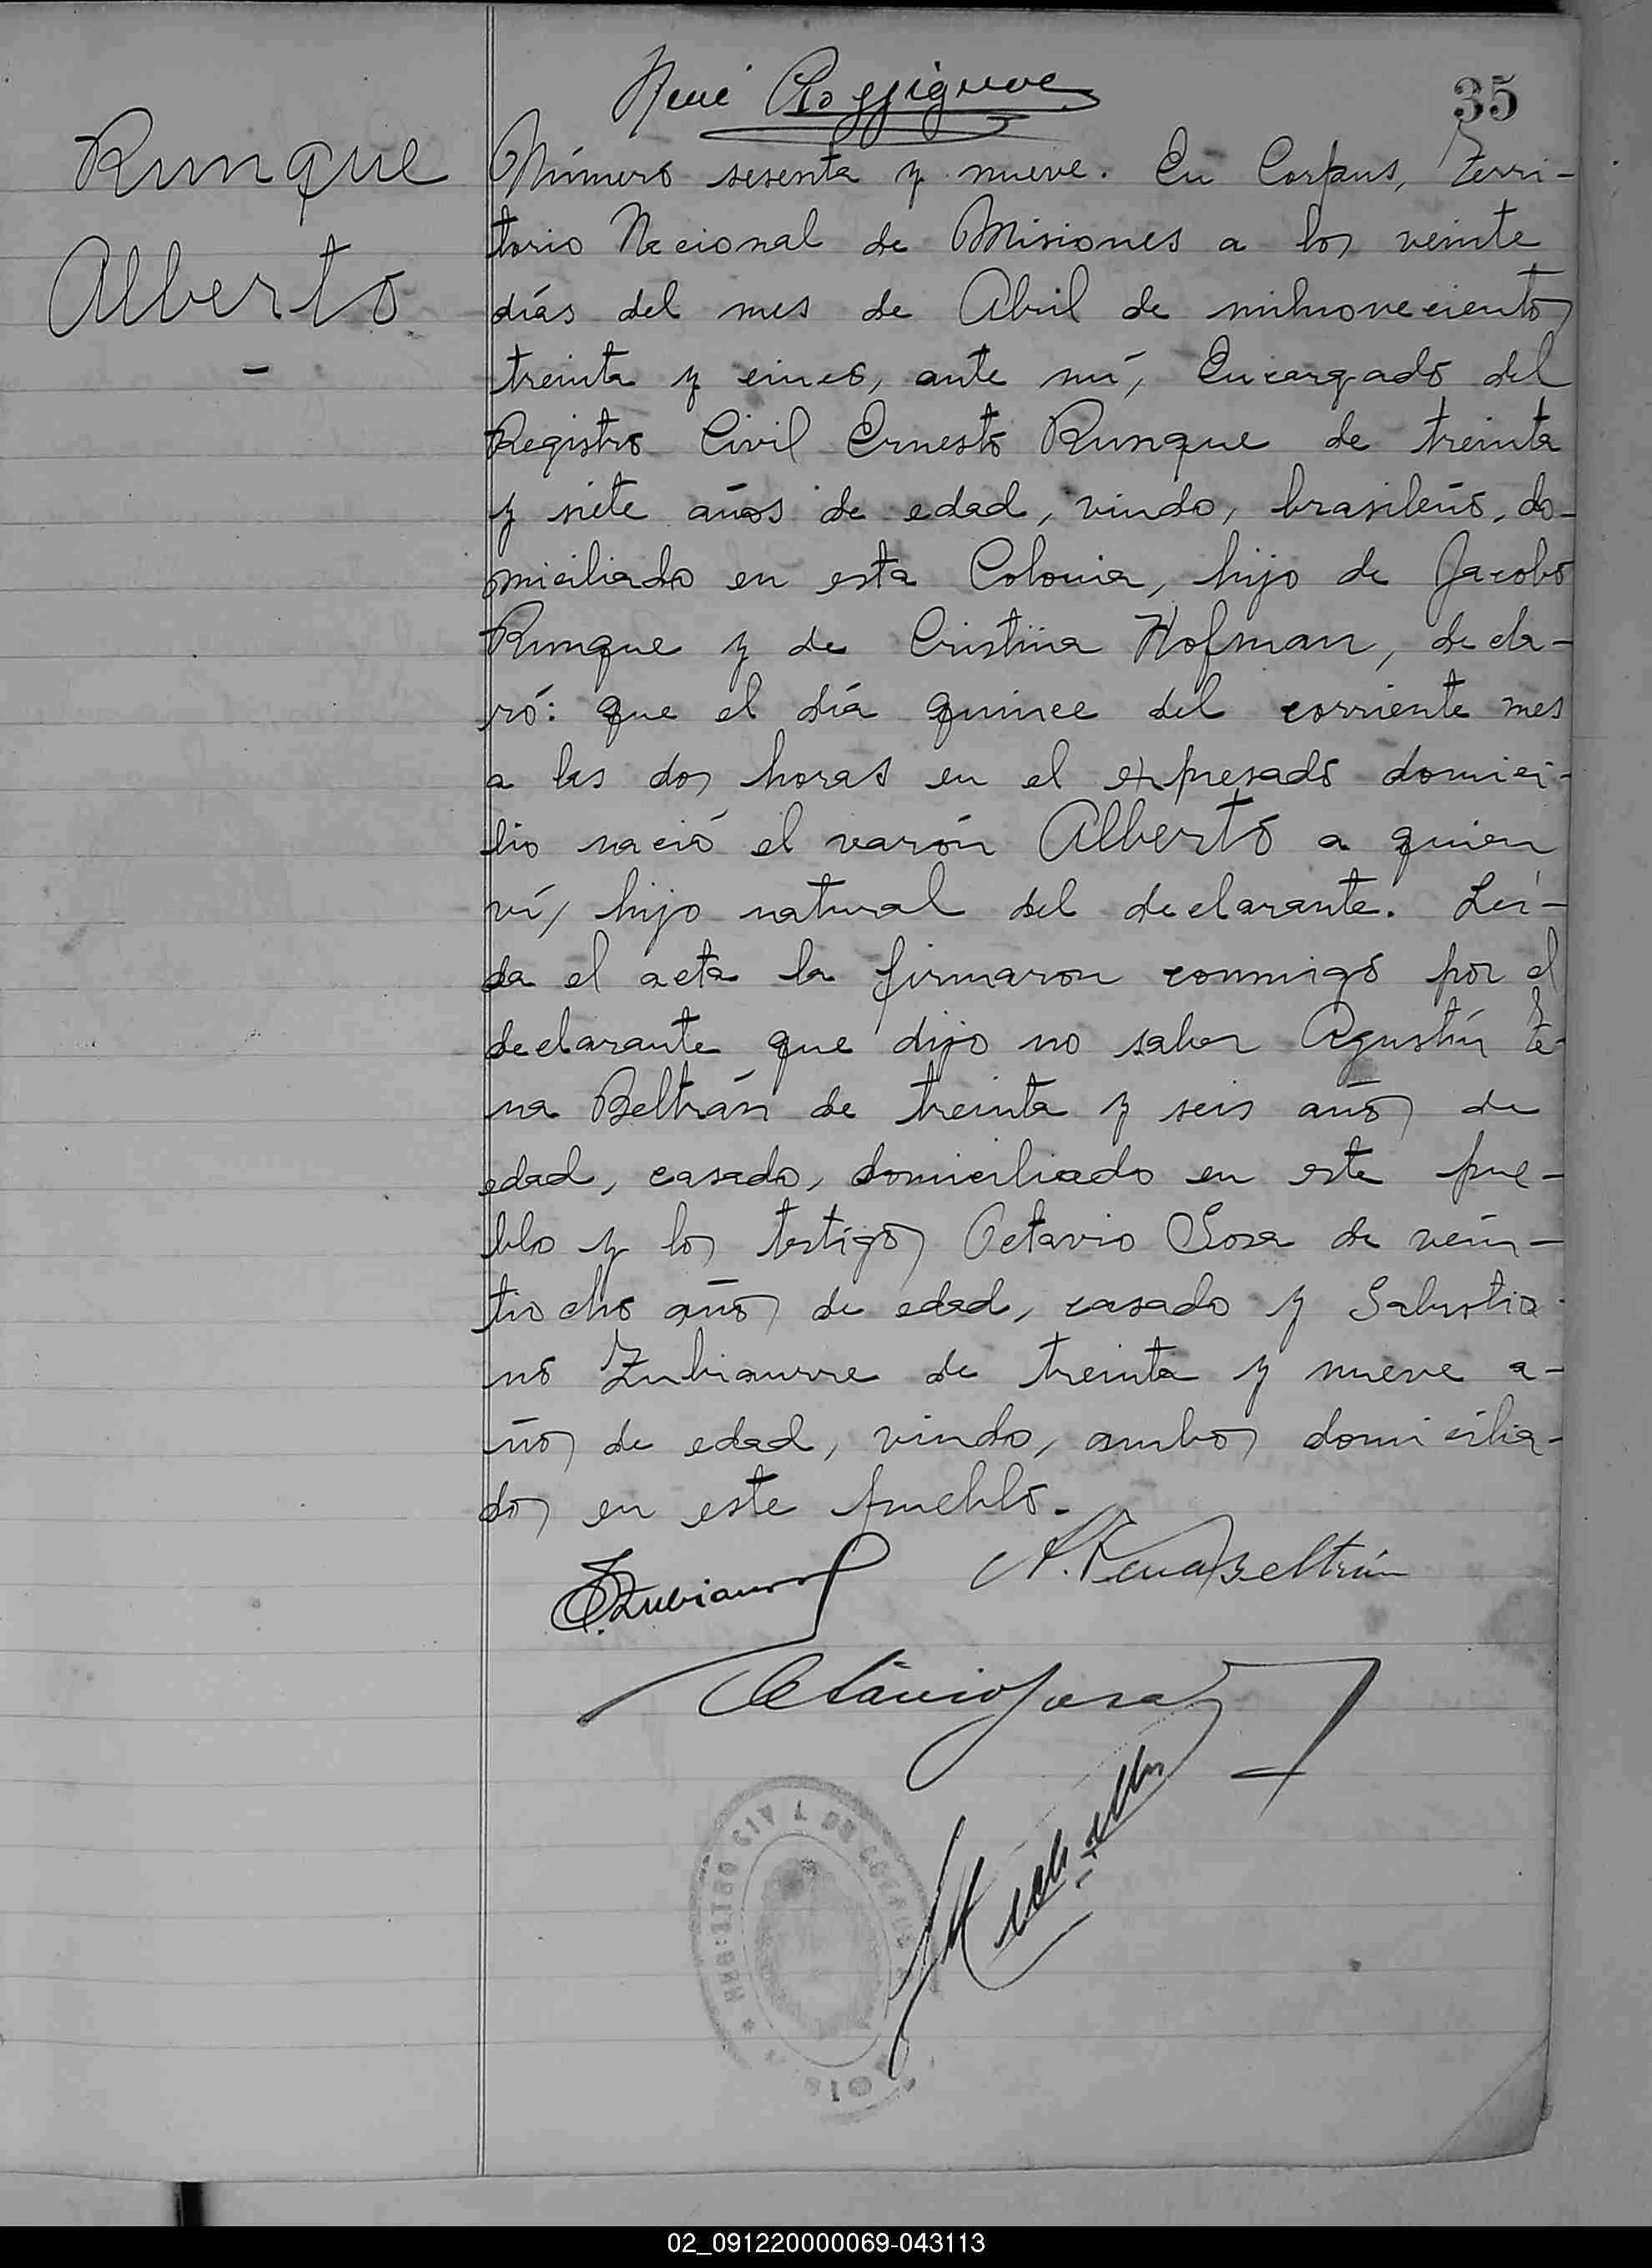 René Rossignere
35
Runque
Alberto
Número sesenta y nueve. En Corpus, Terri-
torio Nacional de Misiones a los veinte
días del mes de Abril de milnovecientos
treinta y cinco, ante mí, Encargado del
Registro Civil Ernesto Runque de treinta
y siete años de edad, viudo, brasileño, do-
miciliado en esta Colonia, hijo de Jacobo
Runque y de Cristina Hofman, decla-
ró: que el día quince del corriente mes
a las dos horas en el expresado domici-
lio nació el varón Alberto a quien
ví, hijo natural del declarante. Leí-
da el acta la firmaron conmigo por el
declarante que dijo no saber Agustín Te-
na Beltrán de treinta y seis años de
edad, casado, domiciliado en este pue-
blo y los testigos Octavio Sosa de vein-
tiocho años de edad, casado y Salustia-
no Zubiaurre de treinta y nueve a-
ños de edad, viudo, ambos domicilia-
dos en este pueblo.
S. Zubiaurre
A. Tena Beltrán
Octavio Sosa
REGISTRO CIVIL DE CORPUS
02_091220000069-043113